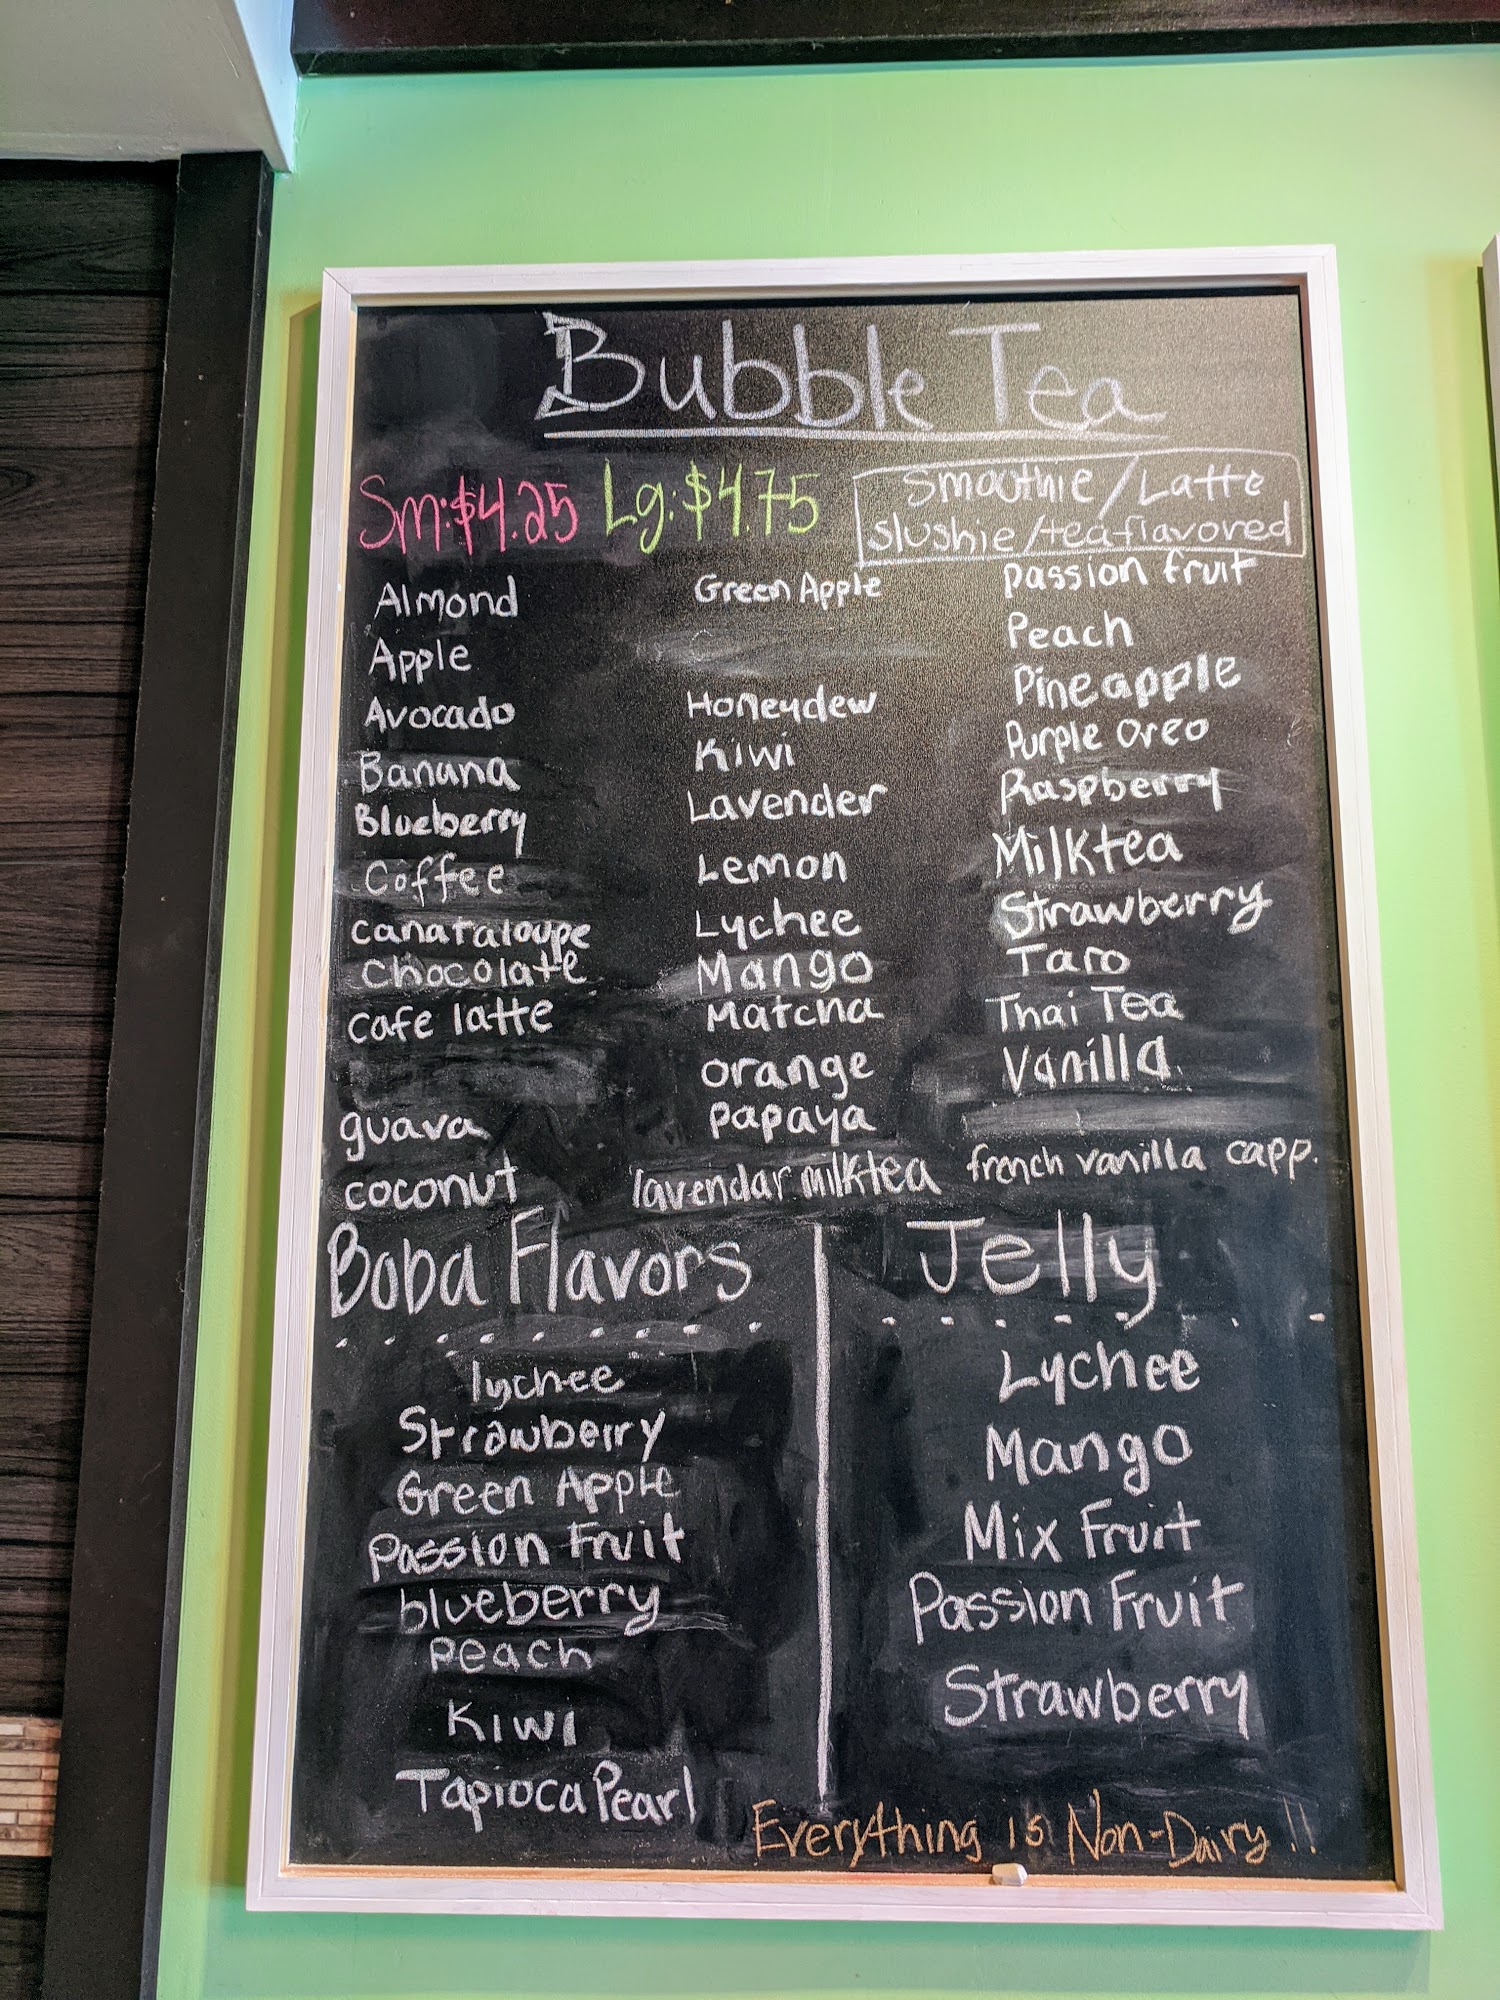 Bubble Tea
Sm:$4.25 Lg:$4.75
Smoothie/Latte
slushie/tea flavored
Almond
Apple
Avocado
Banana
Blueberry
Coffee
Canataloupe
Chocolate
Cafe latte
guava
coconut
Green Apple
Honeydew
Kiwi
Lavender
Lemon
Lychee
Mango
Matcha
orange
papaya
lavendar milktea
passion fruit
Peach
Pineapple
Purple Oreo
Raspberry
Milktea
Strawberry
Taro
Thai Tea
Vanilla
french vanilla capp.
Boba Flavors
lychee
Strawberry
Green Apple
Passion Fruit
blueberry
Peach
Kiwi
Tapioca Pearl
Jelly
Lychee
Mango
Mix Fruit
Passion Fruit
Strawberry
Everything is Non-Dairy!!